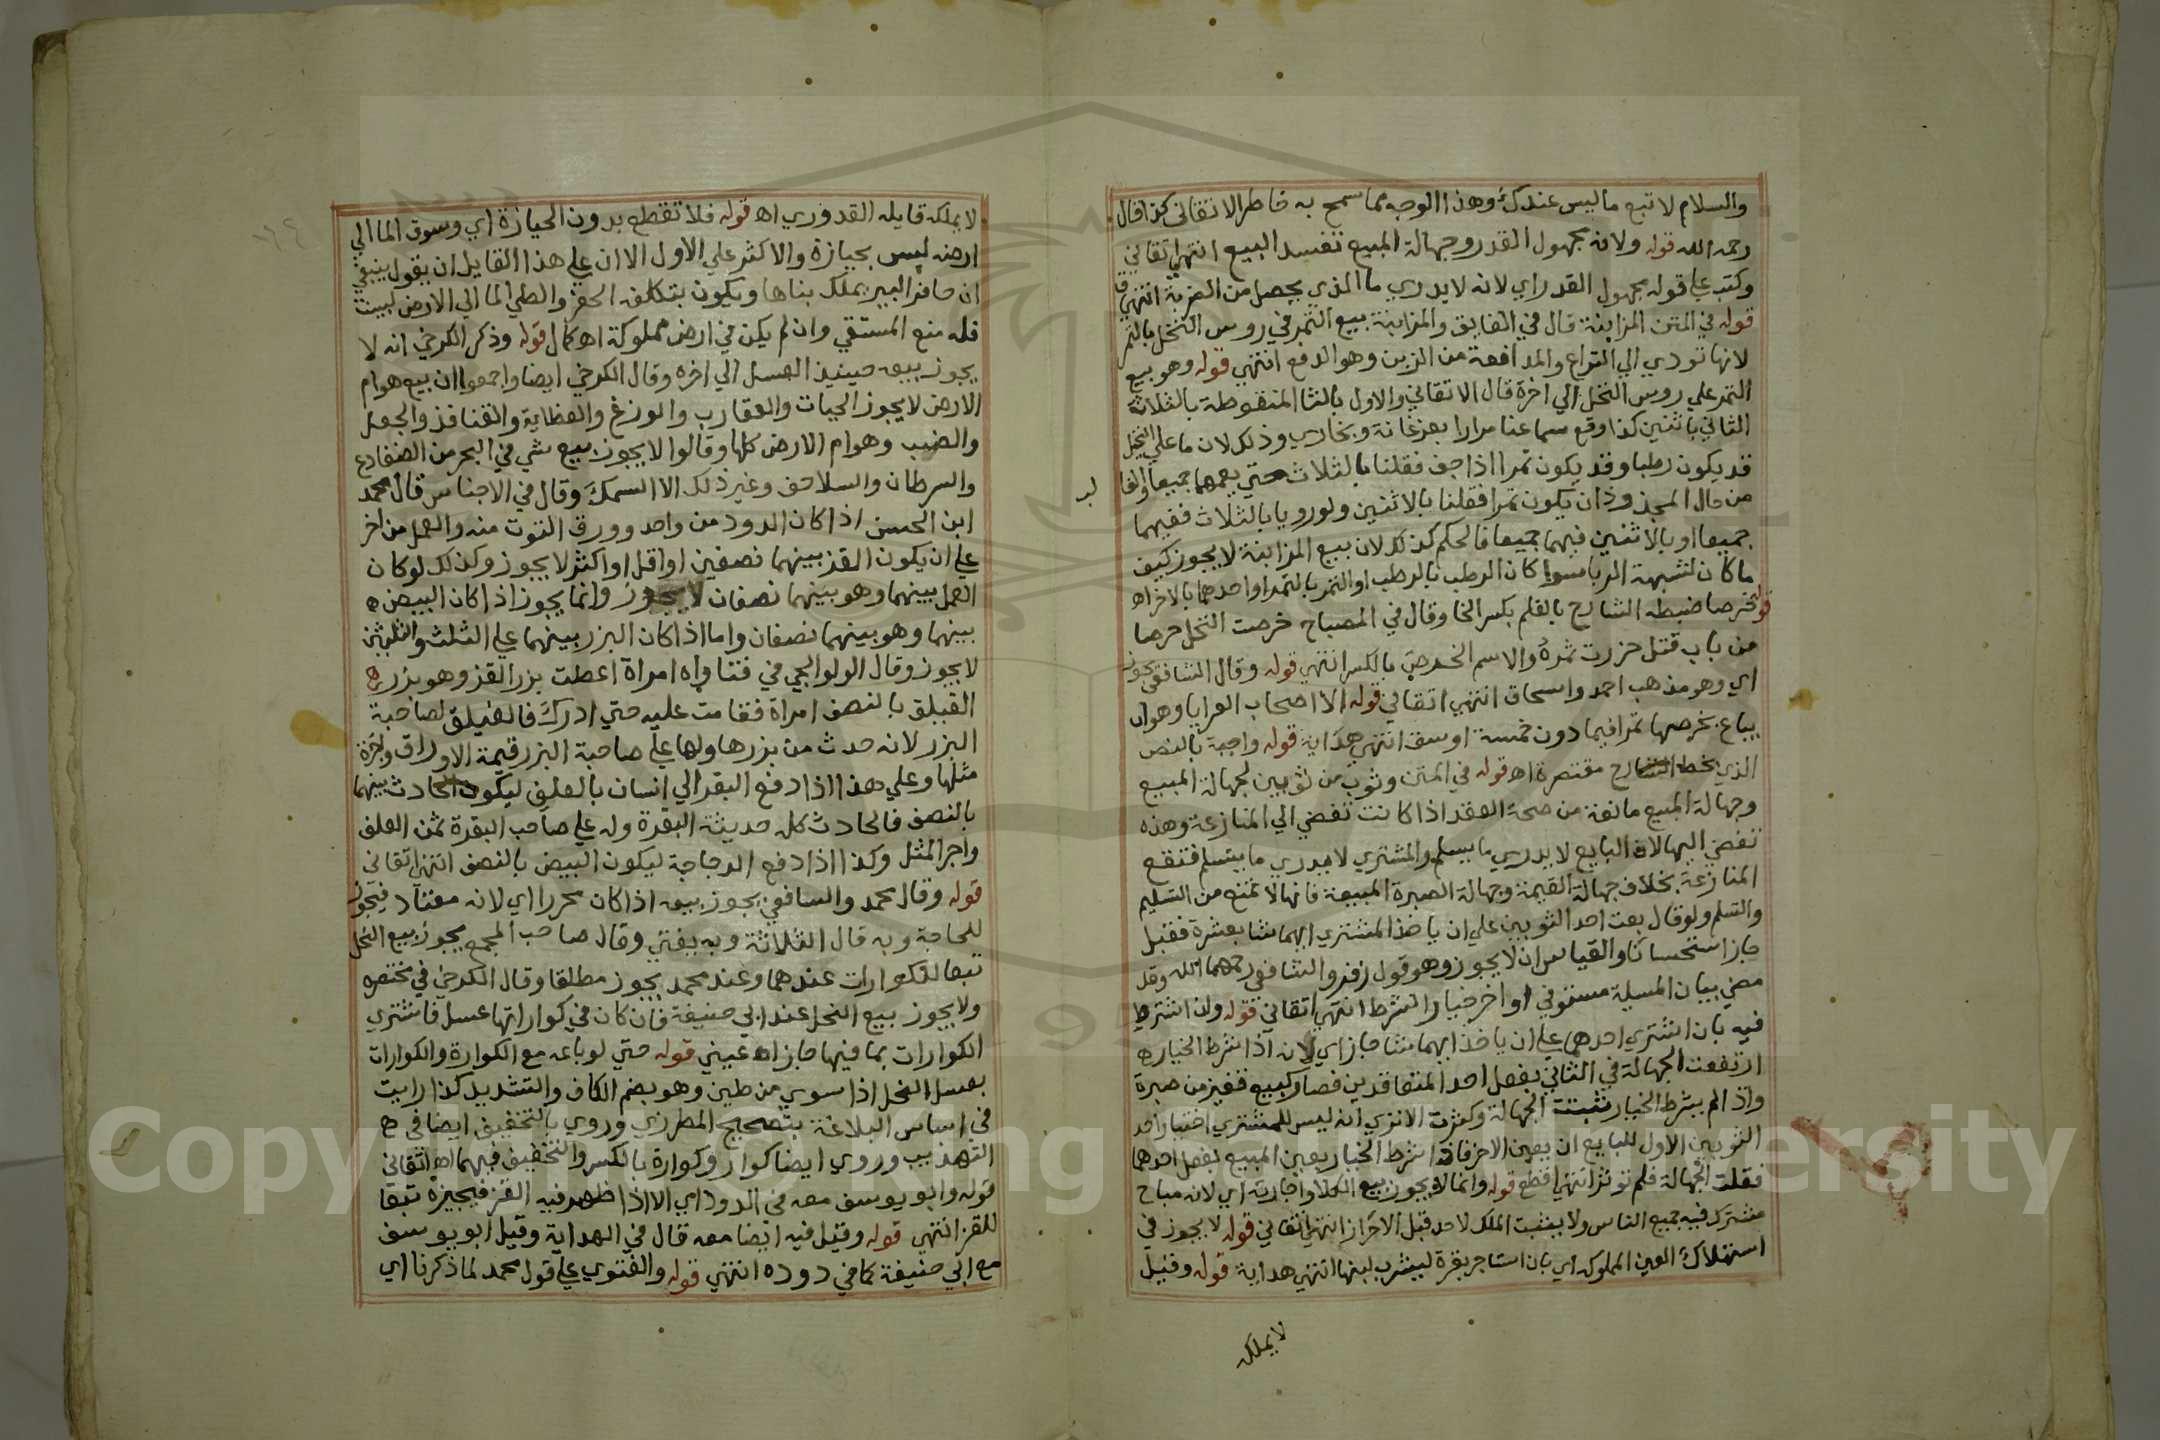 والسلام لا تبع ما ليس عندك وهذا الوجه مما سمح به خاطر الاتقاني كذا قال
رحمه الله قوله ولانه مجهول القدر وجهالة المبيع تفسد البيع انتهي اتقاني
وكتب علي قوله مجهول القدر اي لانه لا يدري ما الذي يحصل من الضربة انتهي ق
قوله في المتن المزابنة قال في الفايق والمزابنة بيع الثمر في روس النخل بالتمر
لانها تودي الي النزاع والمدافعة من الزبن وهو الدفع انتهي قوله وهو بيع
الثمر علي روس النخل الي اخره قال الاتقاني والاول بالثا المنقوطة بالثلاثة
الثاني باثنين كذا وقع سماعنا مرارا بفرغانة وبخاري وذلك لان ما علي النخل
قد يكون رطبا وقد يكون تمرا اذا جف فقلنا بالثلاث حتي يعمهما جميعا وانما
من حال المجذوذ ان يكون تمرا فقلنا بالاثنين ولو رويا بالثلاث ففيهما
جميعا او بالاثنين فيهما جميعا فالحكم كذلك لان بيع المزابنة لا يجوز كيف
ما كان لشبهة الربا سوا كان الرطب بالرطب او التمر بالتمر او احدهما بالاخر اه
قوله خرصا ضبطه الشارح بالقلم بكسر الخا وقال في المصباح خرصت النخل خرصا
من باب قتل حزرت ثمره والاسم الخرص بالكسر انتهي قوله وقال الشافعي يجوز
اي وهو مذهب احمد واسحاق انتهي اتقاني قوله الا اصحاب العرايا وهو ان
يباع بخرصها تمرا فيما دون خمسة اوسق انتهي هداية قوله واجبة بالنص
الذي بخط الشارح مقتصرة اه قوله في المتن وثوب من ثوبين لجهالة المبيع
وجهالة المبيع مانعة من صحة العقد اذا كانت تفضي الي المنازعة وهذه
تفضي اليها لان البايع لا يدري ما يسلم والمشتري لا يدري ما يتسلم فتقع
المنازعة بخلاف جهالة القيمة وجهالة الصبرة المبيعة فانها لا تمنع من التسليم
والتسلم ولو قال بعت احد الثوبين علي ان ياخذ المشتري ايهما شا بعشرة فقبل
جاز استحسانا والقياس ان لا يجوز وهو قول زفر والشافعي رحمهما الله وقد
مضي بيان المسيلة مستوفي اواخر خيار الشرط انتهي اتقاني قوله ولو اشترط
فيه بان اشتري احدهما علي ان ياخذ ايهما شا جاز اي لانه اذا شرط الخيار ه
ارتفعت الجهالة في الثاني بفعل احد المتعاقدين فصار كبيع قفيز من صبرة
واذا لم يشرط الخيار تثبت الجهالة وكثرت الا تري انه ليس للمشتري اختيار احد
الثوبين الاول للبايع ان يعين الاخر فاذا شرط الخيار يعين المبيع بفعل احدهما
فقلت الجهالة فلم توثر انتهي اقطع قوله وانما لا يجوز بيع الكلا واجارته اي لانه مباح
مشترك فيه جميع الناس ولا يثبت الملك لاحد قبل الاحراز انتهي اتقاني قوله لا يجوز في
استهلاك العين المملوكه اي بان استاجر بقرة ليشرب لبنها انتهي هداية قوله وقيل
لا يملكه
لا يملكه قايله القدوري اه قوله فلا تقطع بدون الحيازة اي وسوق الما الي
ارضه ليس بحيازة والاكثر علي الاول الا ان علي هذا القايل ان يقول ينبغي
ان حافر البير يملك بناها ويكون بتكلفه الحفر والطي الما الي الارض كبيت
فله منع المستقي وان لم يكن في ارض مملوكة اه كمال قوله وذكر الكرخي انه لا
يجوز بيعه حينيذ العسل الي اخره وقال الكرخي ايضا واجمعوا ان بيع هوام
الارض لا يجوز الحيات والعقارب والوزغ والعظاية والقنافذ والجعل
والضب وهوام الارض كلها وقالوا لا يجوز بيع شي في البحر من الضفادع
والسرطان والسلاحف وغير ذلك الا السمك وقال في الاجناس قال محمد
ابن الحسن اذا كان الدود من واحد وورق التوت منه والعمل من اخر
علي ان يكون القز بينهما نصفين او اقل او اكثر لا يجوز وكذلك لو كان
العمل بينهما وهو بينهما نصفان لا يجوز وانما يجوز اذا كان البيض ه
بينهما وهو بينهما نصفان واما اذا كان البزر بينهما علي الثلث والثلثين
لا يجوز وقال الولوالجي في فتاواه امراة اعطت بزر القز وهو بزر ه
الفيلق بالنصف امراة فقامت عليه حتي ادرك فالفيلق لصاحبة
البزر لانه حدث من بزرها ولها علي صاحبة البزر قيمة الاوراق واجرة
مثلها وعلي هذا اذا دفع البقر الي انسان بالعلف ليكون الحادث بينهما
بالنصف فالحادث كله حديثة البقرة وله علي صاحب البقرة ثمن العلف
واجر المثل وكذا اذا دفع الدجاجة ليكون البيض بالنصف انتهي اتقاني
قوله وقال محمد والسافعي يجوز بيعه اذا كان محررا اي لانه معتاد فيجوز
للحاجة وبه قال الثلاثة وبه يفتي وقال صاحب المجمع يجوز بيع النحل
تبعا للكوارات عندهما وعند محمد يجوز مطلقا وقال الكرخي في مختصره
ولا يجوز بيع النحل عند ابي حنيفة فان كان في كواراتها عسل فاشتري
الكوارات بما فيها جاز اه عيني قوله حتي لو باعه مع الكوارة والكوارات
بعسل النحل اذا سوي من طين وهو بضم الكاف والتشديد كذا رايت
في اساس البلاغة بتصحيح المطرزي وروي بالتخفيف ايضا في ه
التهذيب وروي ايضا كوار وكوارة بالكسر والتخفيف فيهما اه اتقاني
قوله وابو يوسف معه في الدود اي الا اذا ظهر فيه القز فيجيزه تبعا
للقز انتهي قوله وقيل فيه ايضا معه قال في الهداية وقيل ابو يوسف
مع ابي حنيفة كما في دوده انتهي قوله والفتوي علي قول محمد لما ذكرنا اي
Copyright © King Saud University